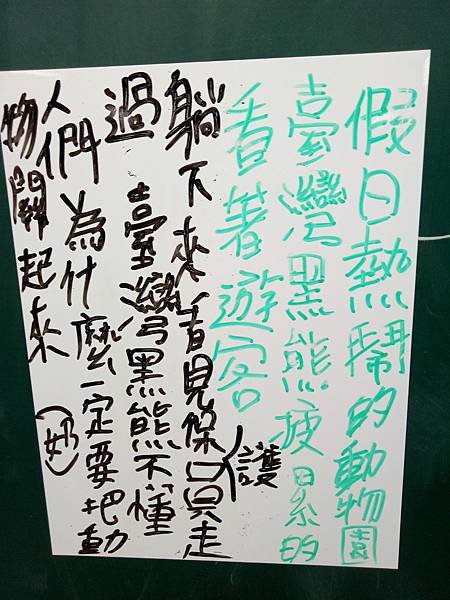 假日熱鬧的動物園
臺灣黑熊疲累的
看著遊客
躺下來看見保護員走
過 臺灣黑熊不懂
人們為什麼一定要把動
物關起來（奶）